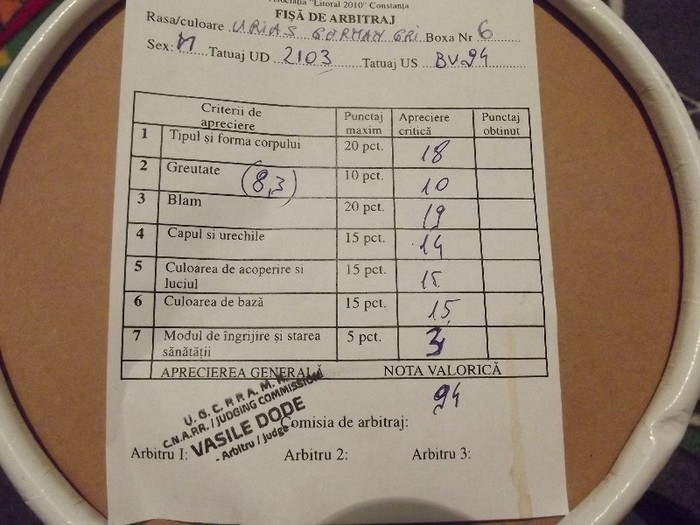 Asociația "Litoral 2010" Constanța
FIȘĂ DE ARBITRAJ
Rasa/culoare URIAS GERMAN GRI Boxa Nr 6
Sex: M Tatuaj UD 2103 Tatuaj US BV94
Criterii de apreciere Punctaj maxim Apreciere critică Punctaj obtinut
1 Tipul și forma corpului 20 pct. 18
2 Greutate (8,3) 10 pct. 10
3 Blam 20 pct. 19
4 Capul si urechile 15 pct. 14
5 Culoarea de acoperire si luciul 15 pct. 15
6 Culoarea de bază 15 pct. 15
7 Modul de îngrijire și starea sănătății 5 pct. 3
APRECIEREA GENERALĂ NOTA VALORICĂ
94
U.G.C.P.R.A.M.
C.N.A.RR. / JUDGING COMMISSION
VASILE DODE
- Arbitru / judge
Comisia de arbitraj:
Arbitru I: Arbitru 2: Arbitru 3: